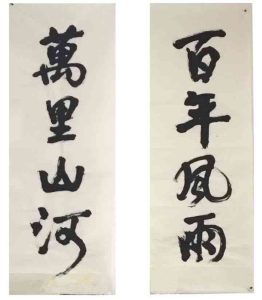 百年風雨
萬里山河